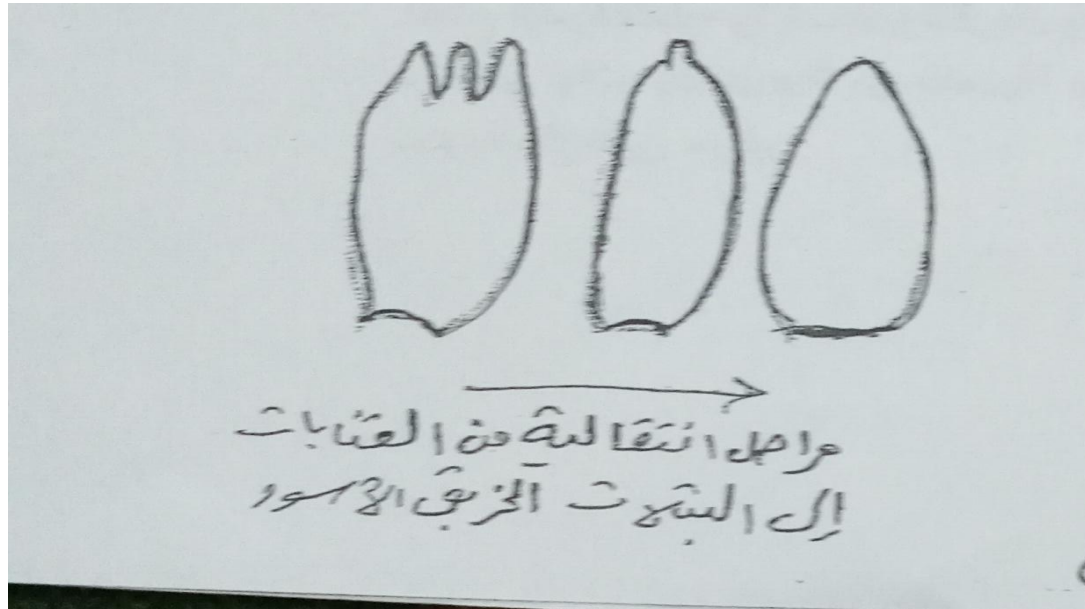 مراحل انتقالية من القنابات
إلى البتلات الخربق الأسود